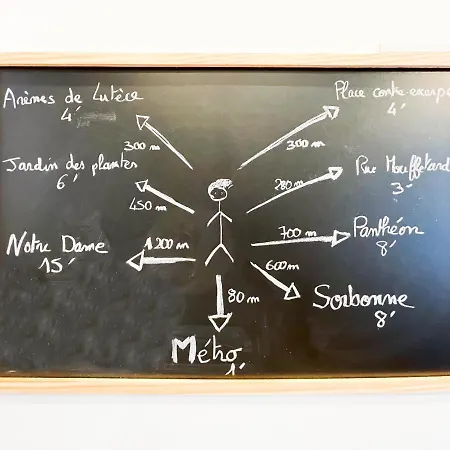 Arènes de Lutèce
4'
300 m
Place contre-escarpe
4'
300 m
Jardin des plantes
6'
450 m
Rue Mouffetard
3'
280 m
Notre Dame
15'
1 200 m
Panthéon
8'
700 m
Sorbonne
8'
600 m
Métro
1'
80 m